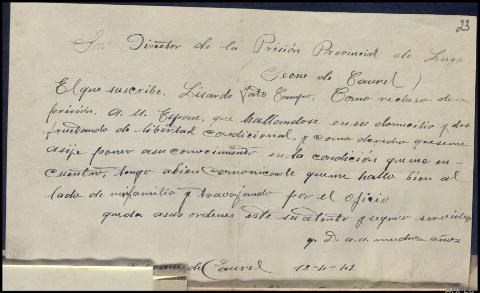 23
Sr. Director de la Presión Provincial de Lugo
(Seone de Caurel)
El que suscribe. Lisardo Fato Campo. Como recluso de a
prisión. A. U. Espone, que hallandose en su domicilio y dis
frutando de libertad condicional, y como derecho que se me
asije poner a su conocimiento en la condición que me en-
cuentro, tengo a bien comunicarle que me hallo bien al
lado de mi familia y travajando por el oficio
queda a sus ordenes este su atento y seguro servidor
q. D. a. u. muchos años
de Caurel 12-4-42